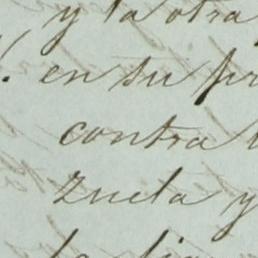 y la otra
en su pr
contra
zuela y